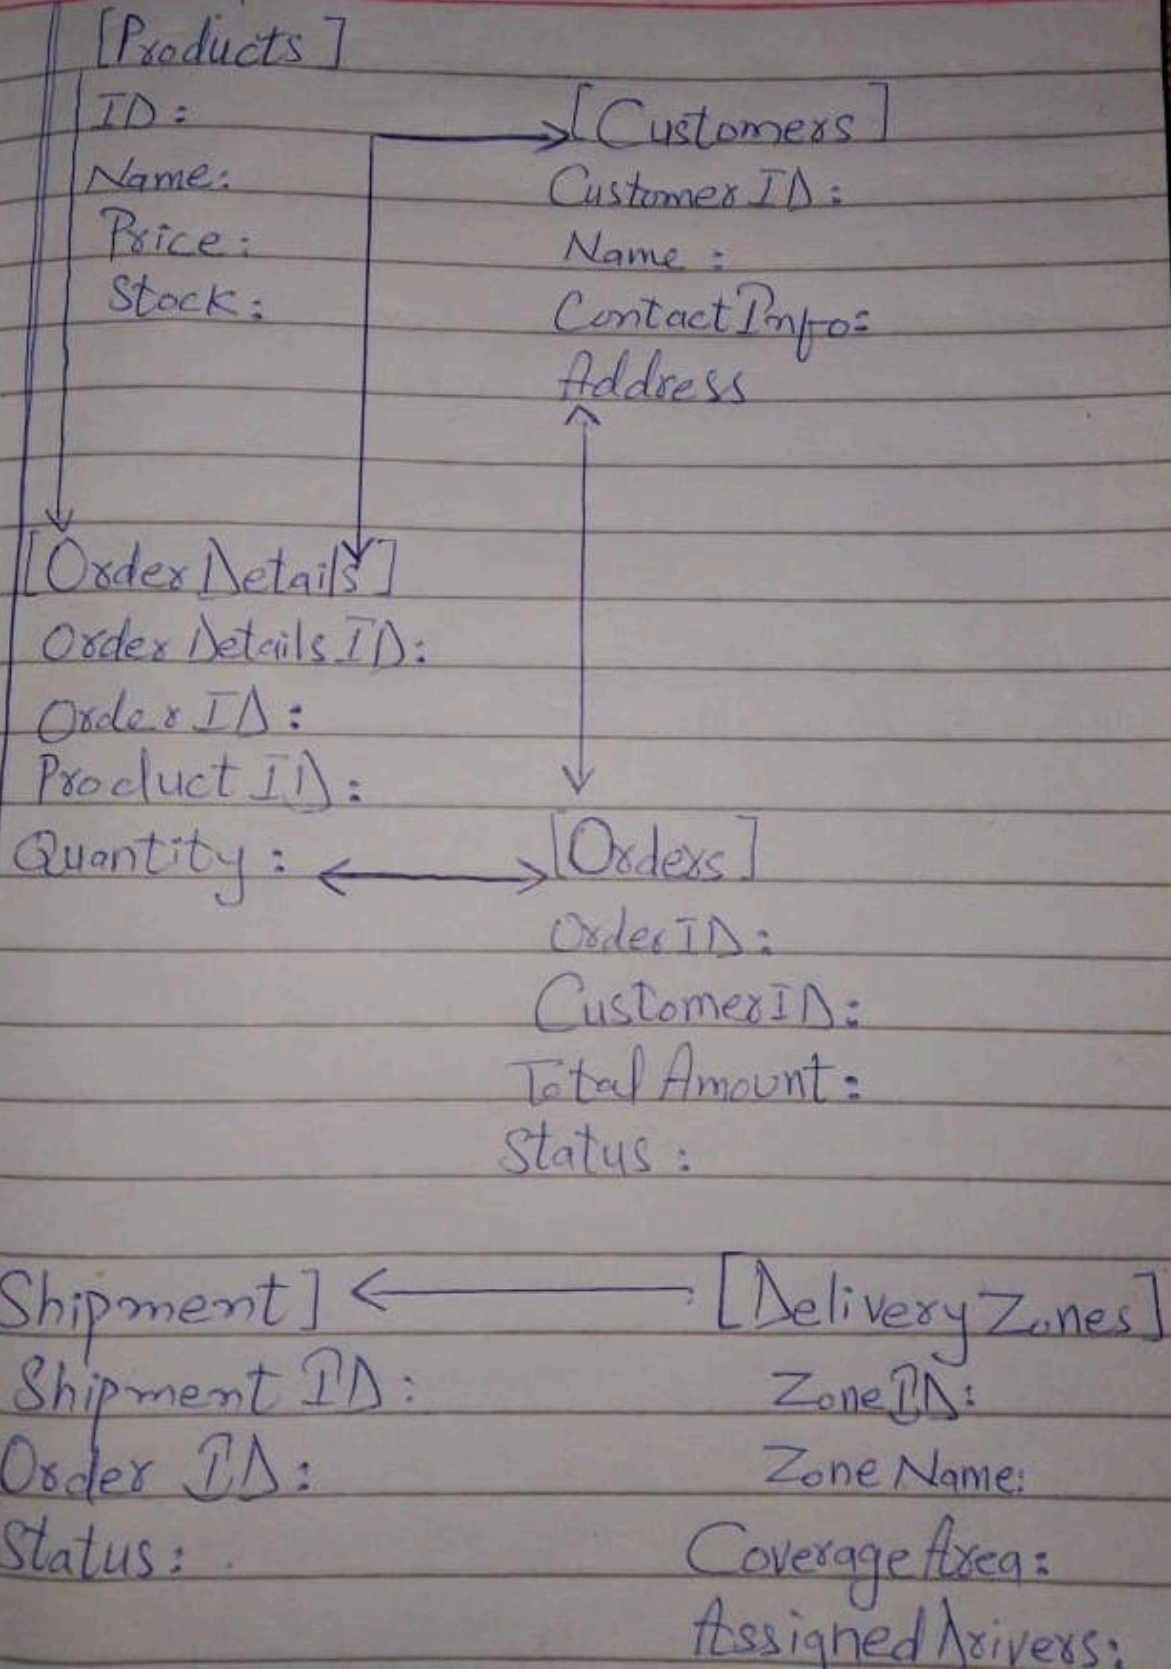 [Products]
ID:
Name:
Price:
Stock:
[Customers]
Customer ID:
Name :
Contact Info:
Address
[Order Details]
Order Details ID:
Order ID:
Product ID:
Quantity:
[Orders]
Order ID:
Customer ID:
Total Amount:
Status :
Shipment]
Shipment ID:
Order ID:
Status:
[Delivery Zones]
Zone ID:
Zone Name:
Coverage Area:
Assigned Drivers: